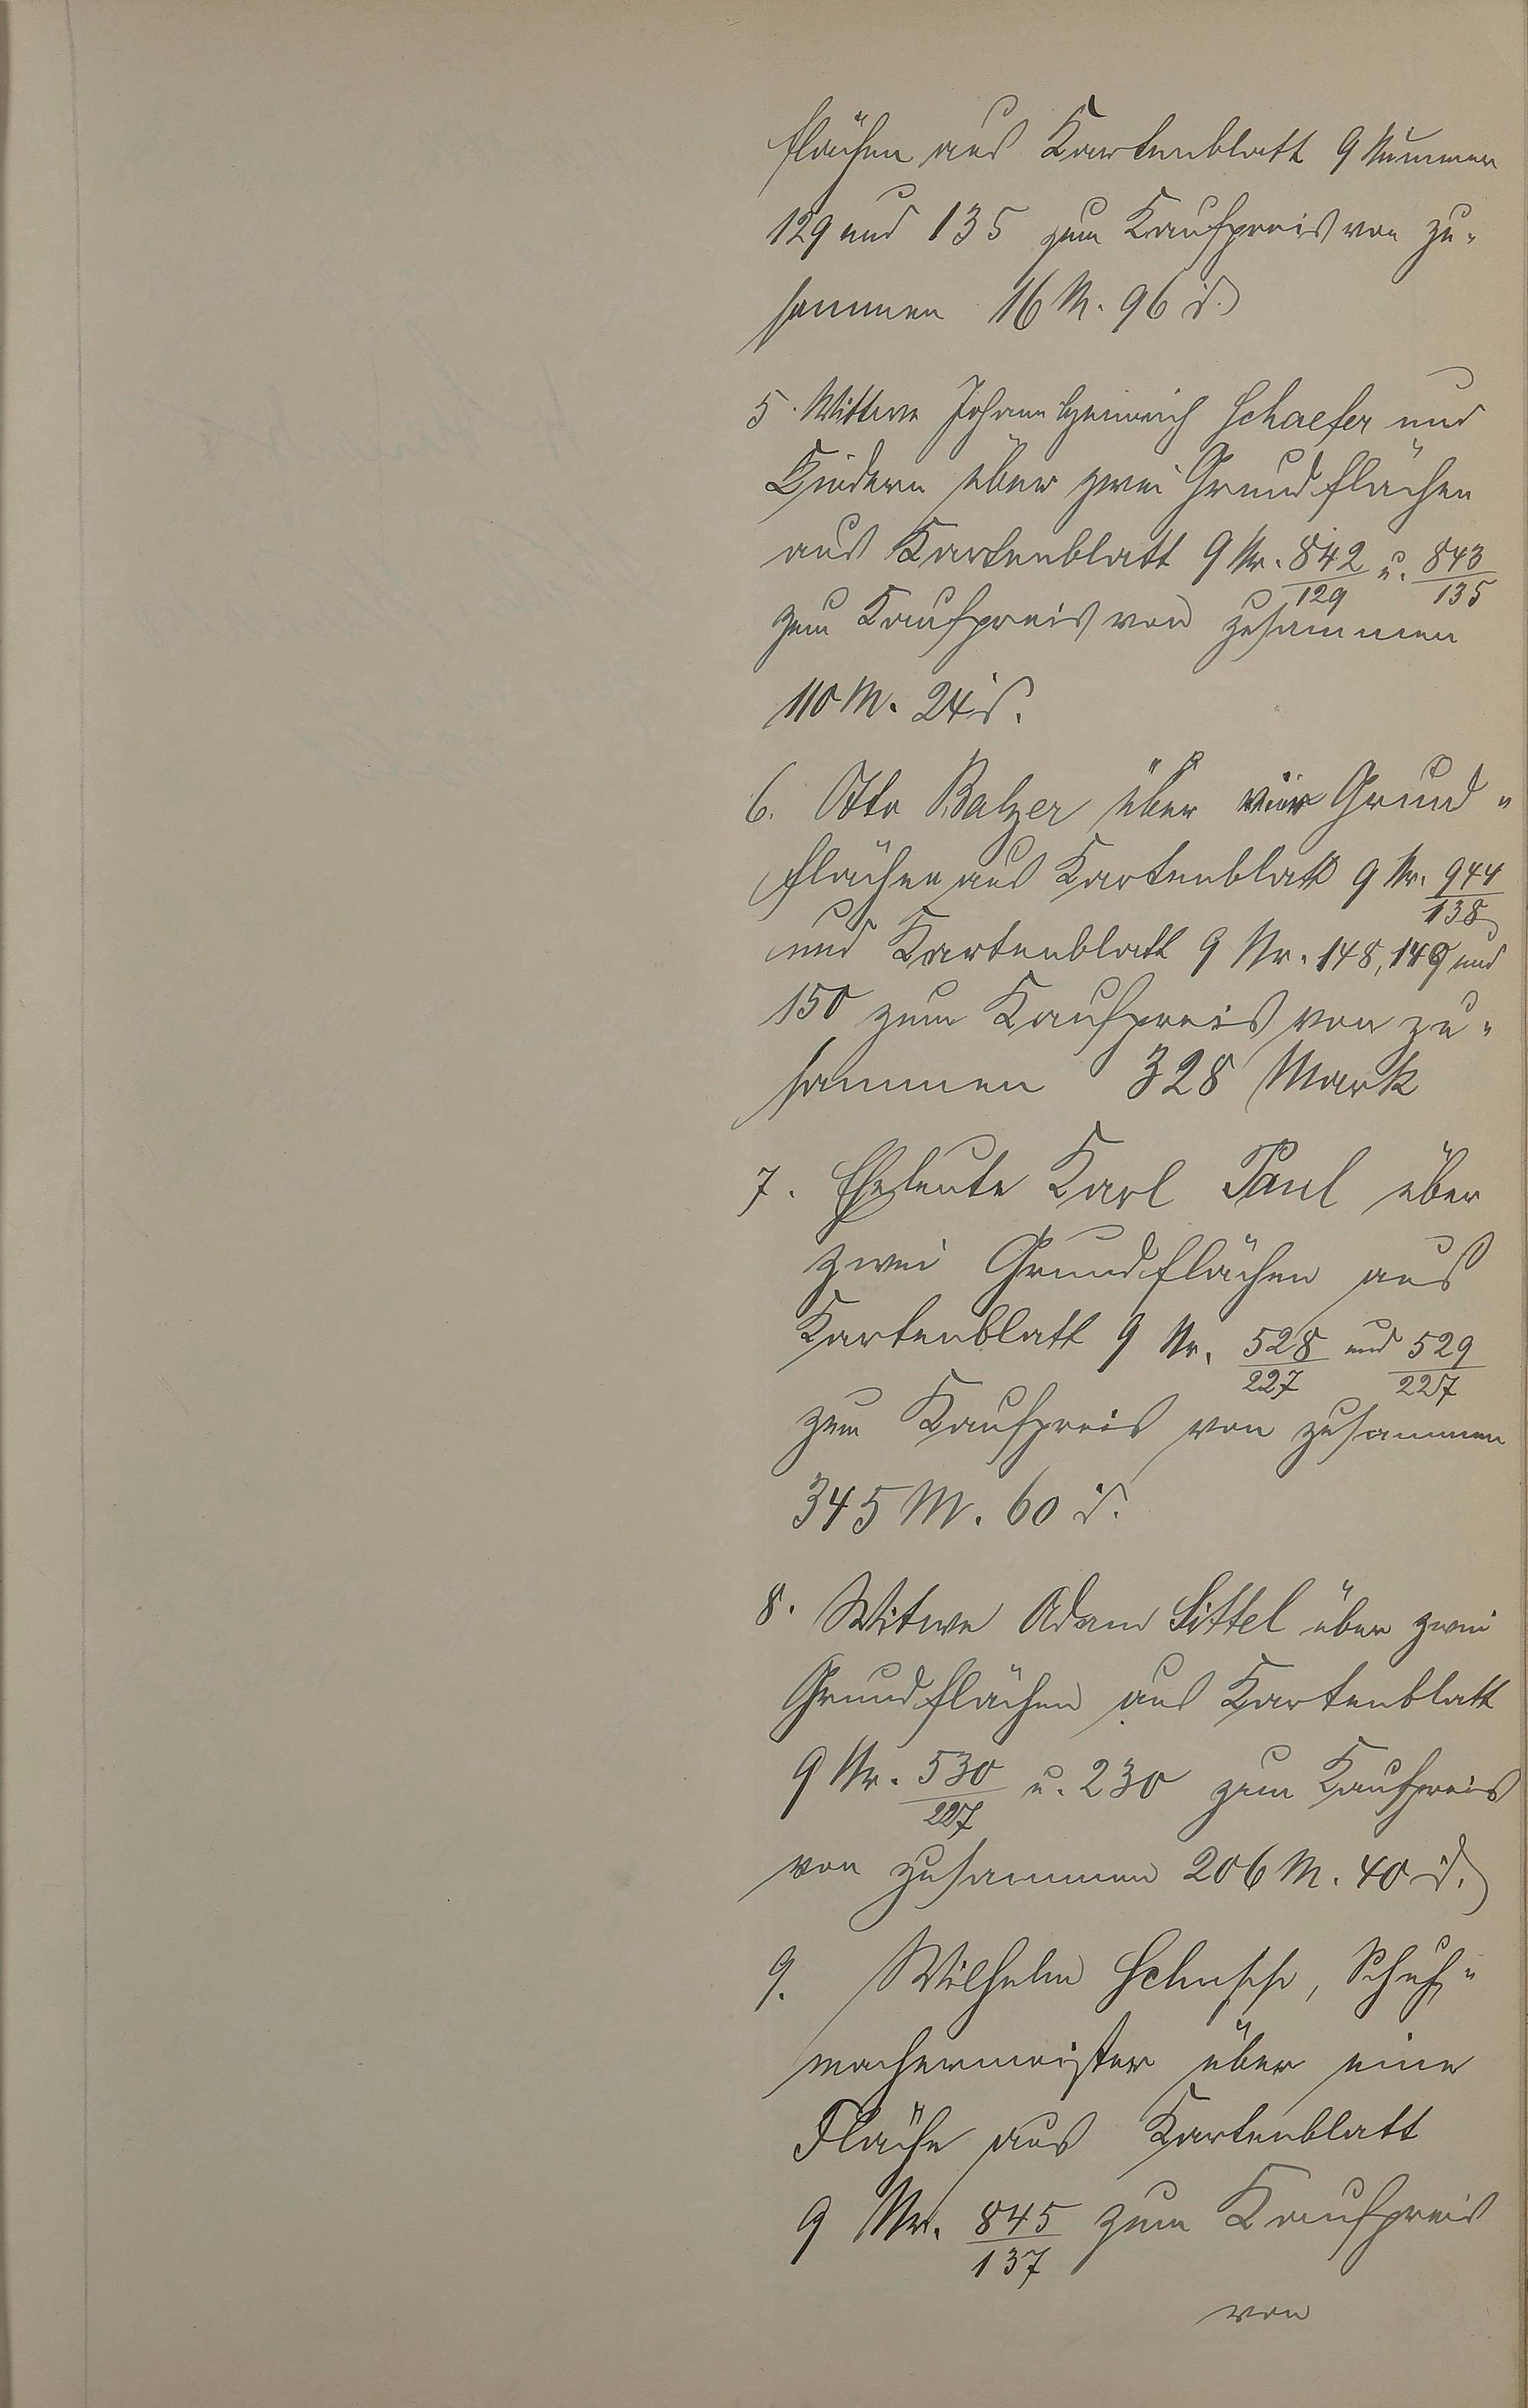 flächen aus Kartenblatt 9 Nummer
129 und 135 zum Kaufpreis von zu-
sammen 16 M. 96 ₰
5. Wittwe Johann Heinrich Schaefer und
Kindern über zwei Grundflächen
aus Kartenblatt 9 Nr. 842/129 u. 843/135
zum Kaufpreis von zusammen
110 M. 24 ₰.
6. Otto Balzer über vier Grund-
flächen aus Kartenblatt 9 Nr. 944/138
und Kartenblatt 9 Nr. 148, 149 und
150 zum Kaufpreis von zu-
sammen 328 Mark
7. Eheleute Karl Paul über
zwei Grundflächen aus
Kartenblatt 9 Nr. 528/227 und 529/227
zum Kaufpreis von zusammen
345 M. 60 ₰.
8. Witwe Adam Sittel über zwei
Grundflächen aus Kartenblatt
9 Nr. 530/227 u. 230 zum Kaufpreis
von zusammen 206 M. 40 ₰.
9. Wilhelm Schuh-
machermeister über eine
Fläche aus Kartenblatt
9 Nr. 845/137 zum Kaufpreis
von